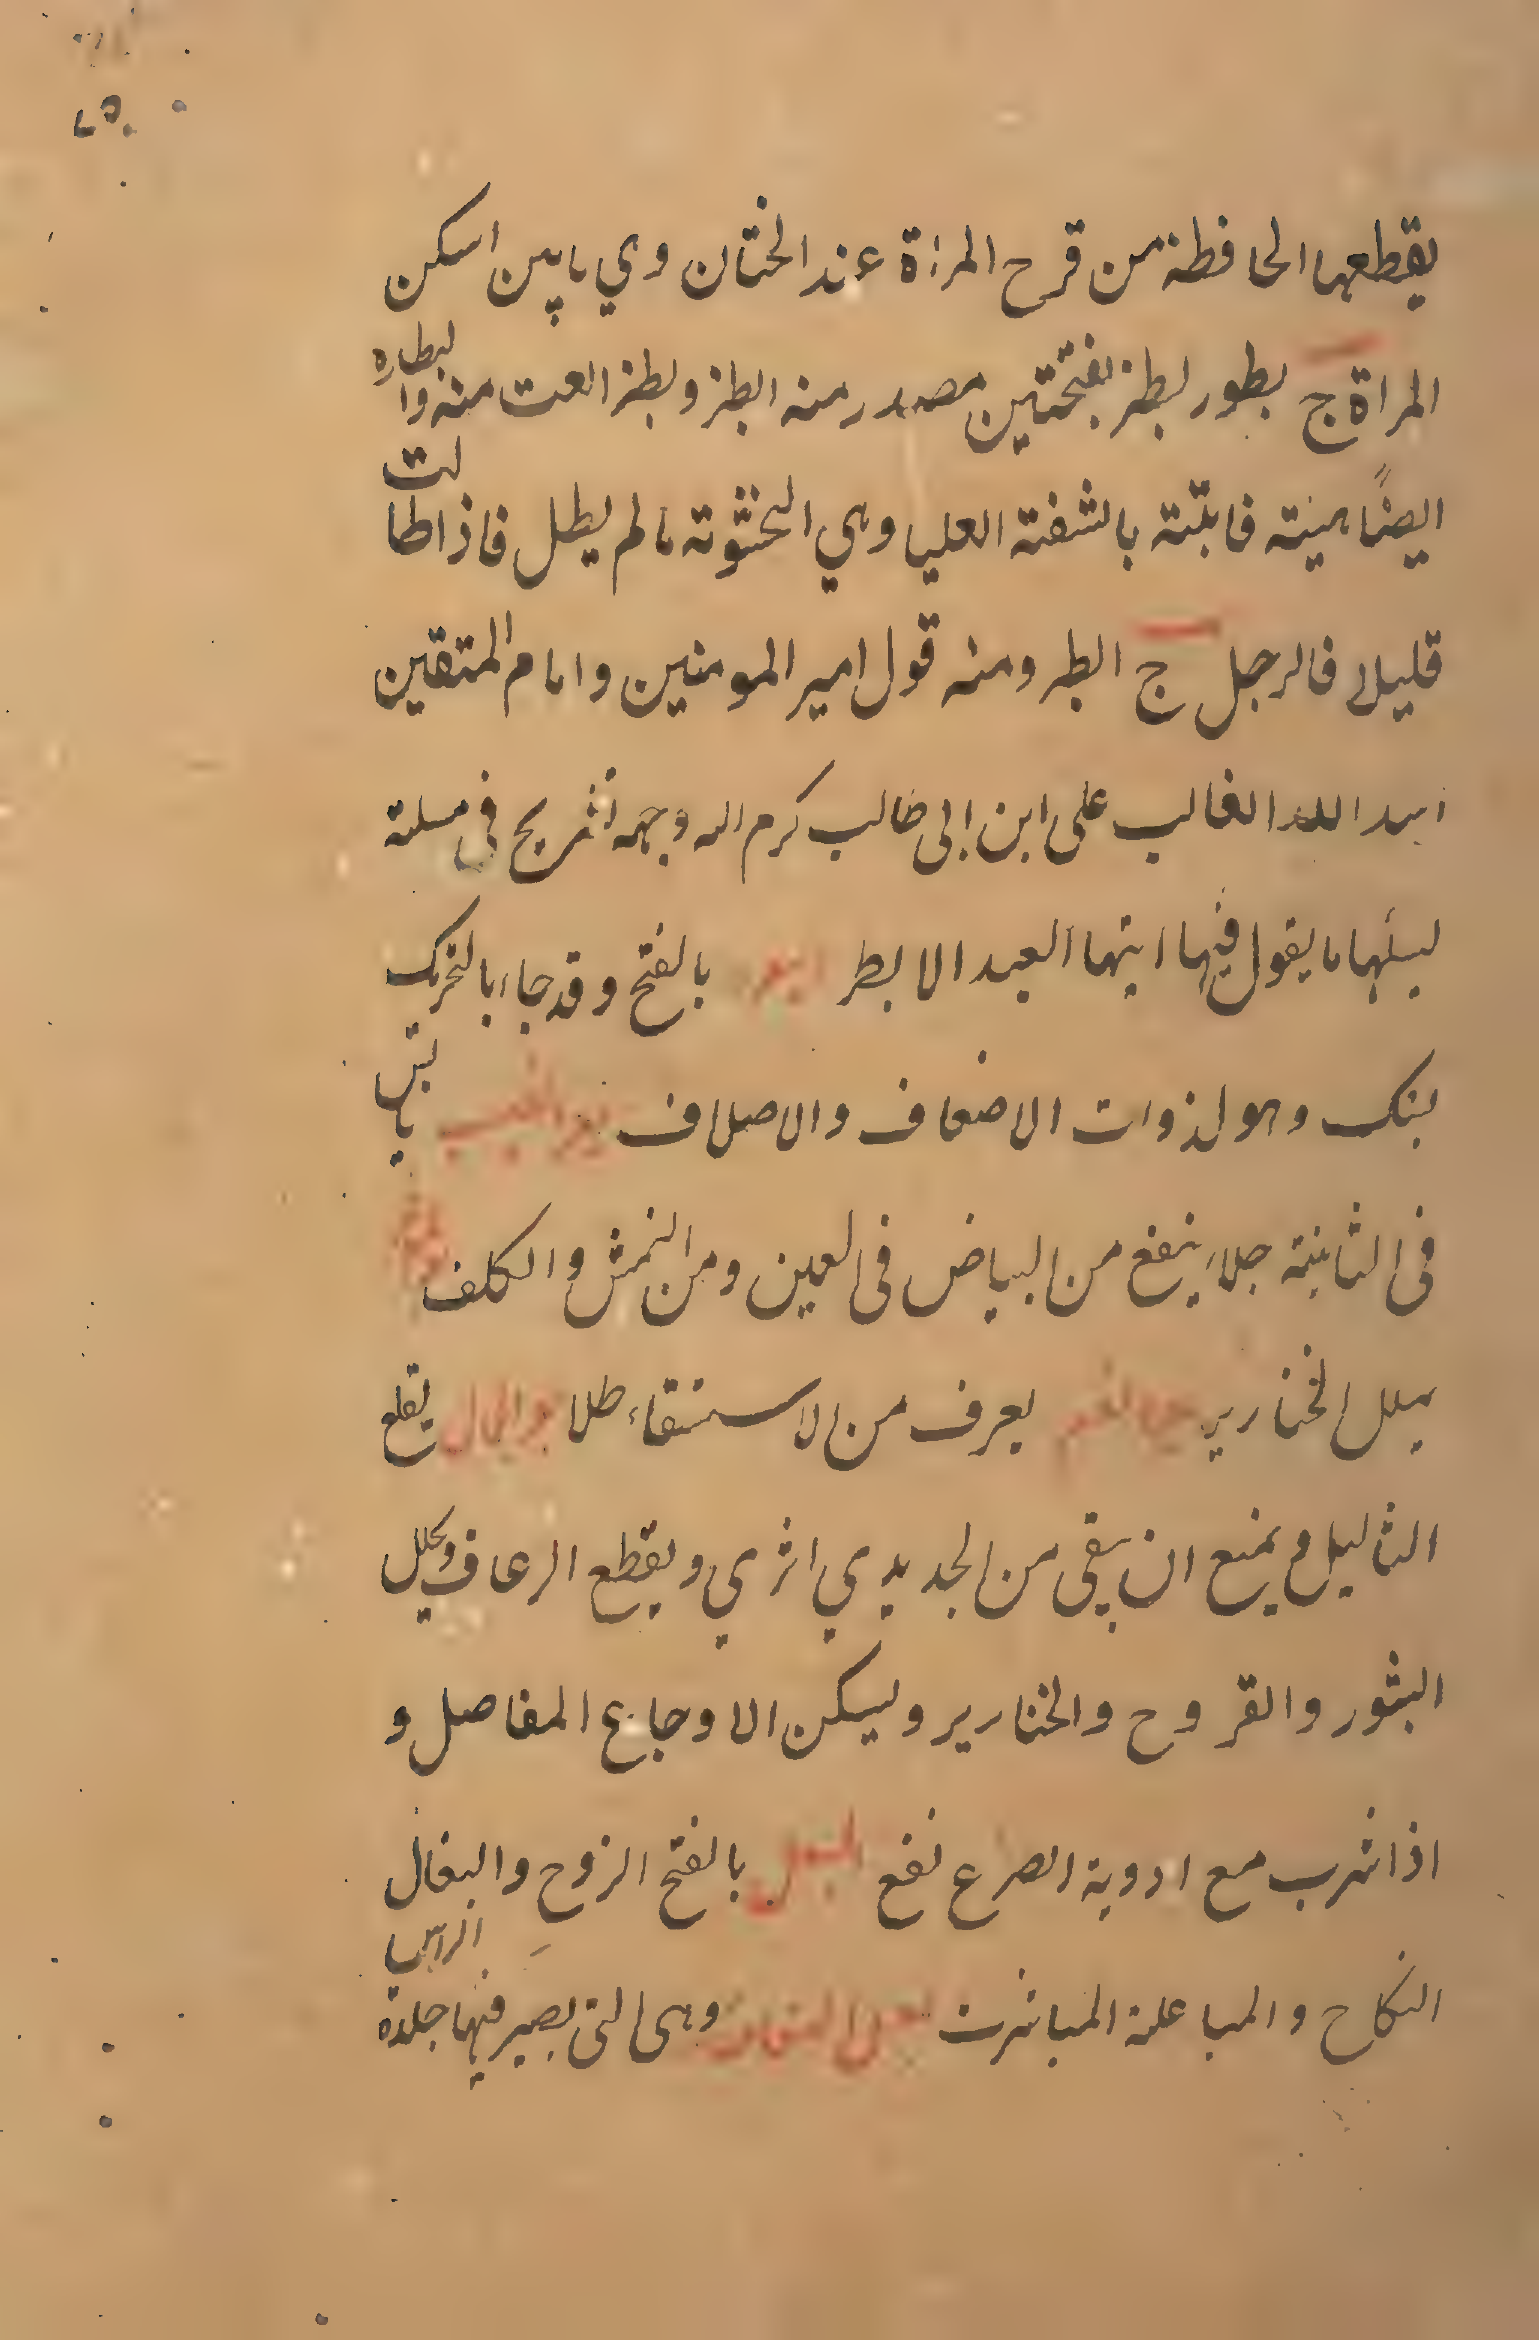 يقطعها الحافظة من قرح المراة عند الختان وي ما بين اسكن
المراة ج بطور لبطز بفتحتين مصدر منه ابطز وبطز العت منه والبطاره
ايضًا هينة فابتة بالشفتة العليا وهي التحتوتة ما لم يطل فاذا طالت
قليلا فالرجل ج ابطر ومنه قول امير المومنين وامام المتقين
اسد الله الغالب على ابن ابى طالب كرم الله وجهه لشريح فى مسلة
ليسلها ما يقول فيها ايتها العبد الابطر بالفتح وقد جاا بالتحريك
بنك وهو لذوات الاضعاف والاصلاف يابس
فى الثانية جلاء ينفع من البياض فى العين ومن النمش والكلف
يحلل الخنارير يعرف من الاستسقاء طلا يقلع
الثاليل ويمنع ان يبقى من الجديدي اثري ويقطع الرعاف ويحلل
البثور والقروح والخنارير وليسكن الاوجاع المفاصل و
اذا شرب مع ادوية الصرع نفع البعل بالفتح الزوح والبغال
النكاح والمباعلة المباشرت وهى التى يصير فيها جلدة الراس